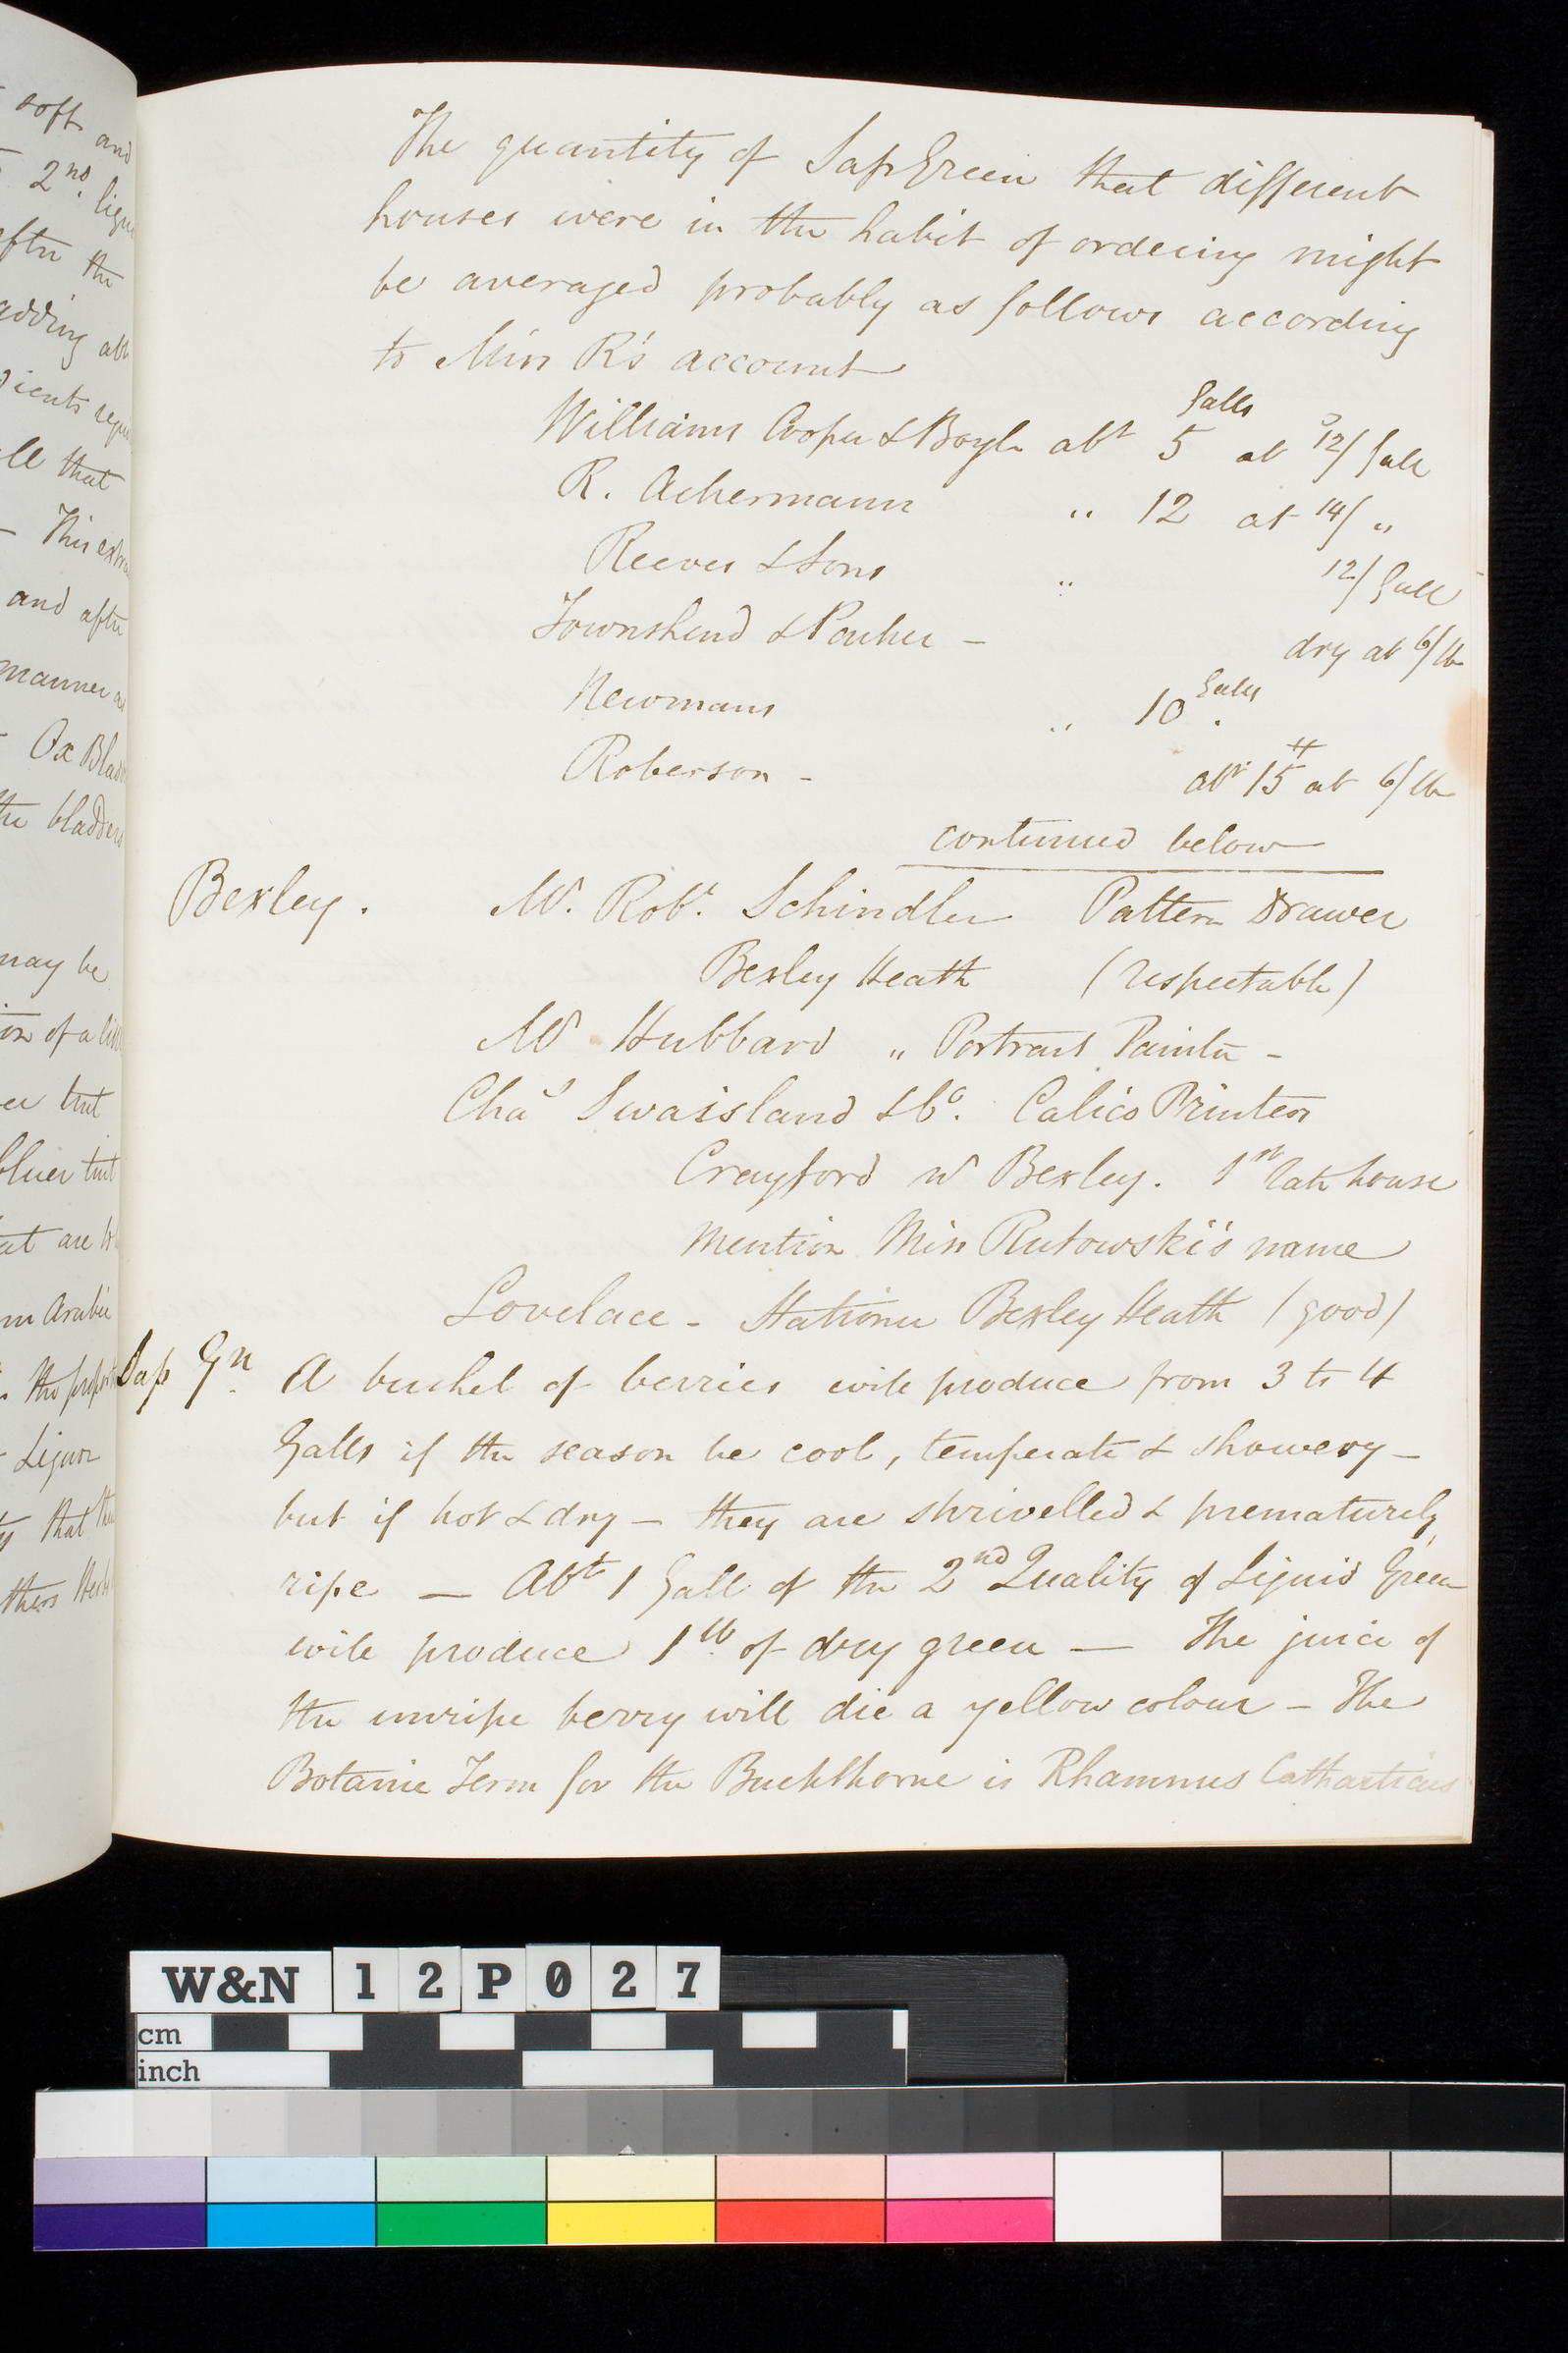 soft and
2nd. liqu
after the
adding abt
dients requi
ll that
This extra
and after
manner as
Ox Bladd
the bladders
may be
on of a
er tint
bluer tint
at are to
m Arabic
tho proport
Liquor
ty that the
thers
The quantity of Sap Green that different
houses were in the habit of ordering might
be averaged probably as follows according
to Miss R's account
Galls
Williams Cooper & Boyle abt 5 at 12/ Gall
R. Ackermann " 12 at 14/ "
Reeves & Sons " 12/ Gall
Townshend & Parker - dry at 6/lb
Newmans " 10 Galls
Roberson - abt 15 lb at 6/lb
continued below
Bexley. Mr. Robt. Schindler Pattern Drawer
Bexley Heath (respectable)
Mr Hubbard " Portrait Painter -
Chas Swaisland & Co. Calico Printers
Crayford nr Bexley. 1st Rate house
Mention Miss Rutowski's name
Lovelace - Stationer Bexley Heath (good)
Sap Gn. A bushel of berries will produce from 3 to 4
Galls if the season be cool, temperate & showery -
but if hot & dry - they are shrivelled & prematurely
ripe - Abt 1 Gall of the 2nd Quality of Liquid Green
will produce 1 lb. of dry green - The juice of
the unripe berry will die a yellow colour - The
Botanic Term for the Buckthorne is Rhamnus Catharticus
W&N 12P027
cm
inch